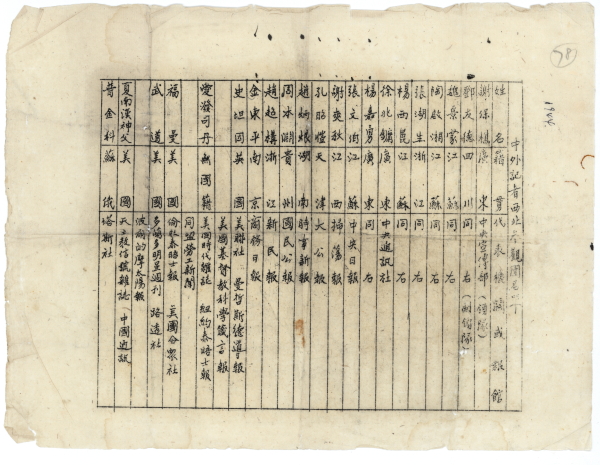 58
1944
中外記者西北參觀團
姓名 籍貫 代表機關或報館
謝保樵 廣東 中央宣傳部（領隊）
鄧友德 四川 同右（副領隊）
魏景蒙 江蘇 同右
陶啟湖 江蘇 同右
張湖生 浙江 同右
楊西崑 江蘇 同右
徐兆鏞 廣東 中央通訊社
楊嘉勇 廣東 同右
張文伯 江蘇 中央日報
謝爽秋 江西 掃蕩報
孔昭愷 天津 大公報
趙炳烺 湖南 時事新報
周本淵 貴州 國民公報
趙超構 浙江 新民報
金東平 南京 商務日報
史坦因 英國 美聯社 曼哲斯德導報
美國基督教科學箴言報
愛潑司丹 無國籍 美國時代雜誌 紐約泰晤士報
同盟勞工新聞
福曼 美國 倫敦泰晤士報 美國合眾社
武道 美國 多倫多明星週刊 路透社
波爾的摩太陽報
夏南漢神父 美國 天主教信號雜誌 中國通訊
普金科 蘇俄 塔斯社